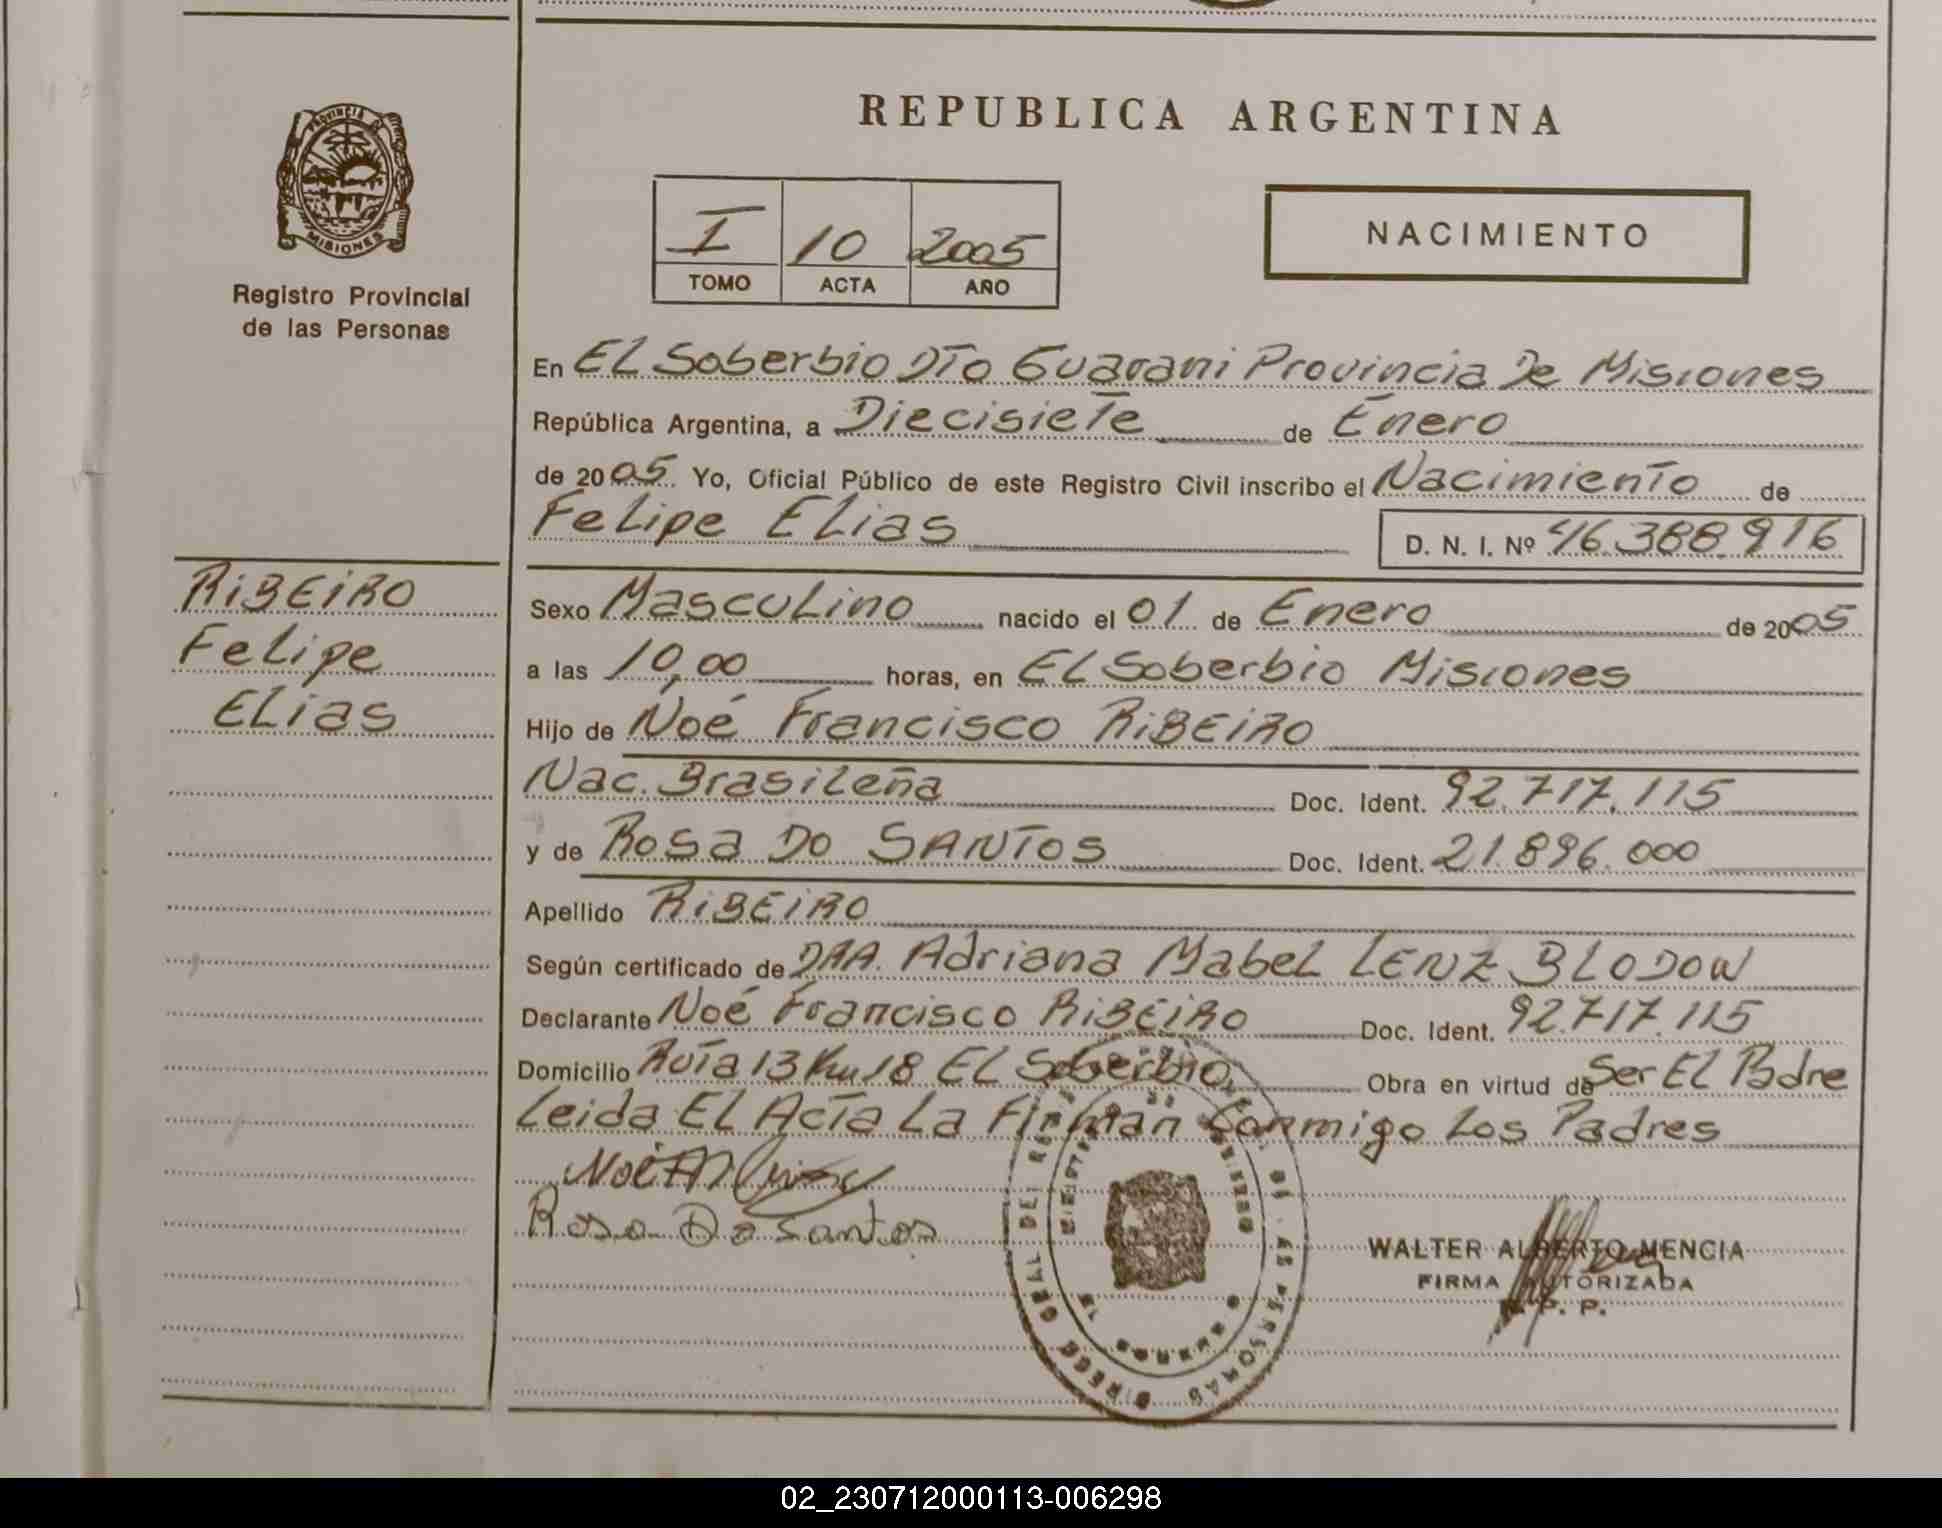 PROVINCIA DE
MISIONES
Registro Provincial
de las Personas
RiBEiRO
Felipe
Elias
REPUBLICA ARGENTINA
I 10 2005
TOMO ACTA AÑO
NACIMIENTO
En El Soberbio Dto Guarani Provincia De Misiones
República Argentina, a Diecisiete de Enero
de 2005 Yo, Oficial Público de este Registro Civil inscribo el Nacimiento de
Felipe Elias D. N. I. Nº 46.388.916
Sexo Masculino nacido el 01 de Enero de 2005
a las 10,00 horas, en El Soberbio Misiones
Hijo de Noé Francisco RiBEiRO
Nac. Brasileña Doc. Ident. 92.717.115
y de Rosa Do SANTOS Doc. Ident. 21.896.000
Apellido RiBEiRO
Según certificado de DRA. Adriana Mabel LENZ BLODOW
Declarante Noé Francisco RiBEiRO Doc. Ident. 92.717.115
Domicilio Ruta 13 Km 18 El Soberbio, Obra en virtud de Ser El Padre
Leida El Acta La Firman Conmigo Los Padres
Rosa Do Santos
WALTER ALBERTO MENCIA
FIRMA AUTORIZADA
R. P. P.
02_230712000113-006298